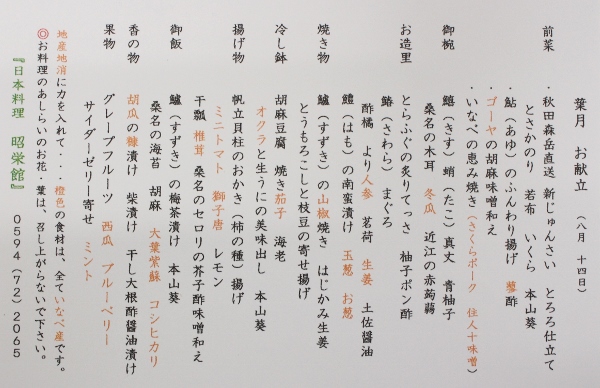 葉月 お献立 (八月 十四日)
前菜 ・秋田森岳直送 新じゅんさい とろろ仕立て
ときさかのり 若布 いくら 本山葵
・鮎(あゆ)のふんわり揚げ 蓼酢
・ゴーヤの胡麻味噌和え
・いなべの恵み焼き(さくらポーク 住人十味噌)
御椀 鱚(きす)蛸(たこ)真丈 青柚子
桑名の木耳 冬瓜 近江の赤蒟蒻
お造里 とらふぐの炙りてっさ 柚子ポン酢
鰆(さわら) まぐろ
酢橘 より人参 茗荷 生姜 土佐醤油
鱧(はも)の南蛮漬け 玉葱 お葱
焼き物 鱸(すずき)の山椒焼き はじかみ生姜
とうもろこしと枝豆の寄せ揚げ
冷し鉢 胡麻豆腐 焼き茄子 海老
オクラと生うにの美味出し 本山葵
揚げ物 帆立貝柱のおかき(柿の種)揚げ
ミニトマト 獅子唐 レモン
干瓢 椎茸 桑名のセロリの芥子酢味噌和え
御飯 鱸(すずき)の梅茶漬け 本山葵
桑名の海苔 胡麻 大葉紫蘇 コシヒカリ
香の物 胡瓜の糠漬け 柴漬け 干し大根酢醤油漬け
果物 グレープフルーツ 西瓜 ブルーベリー
サイダーゼリー寄せ ミント
地産地消に力を入れて・・・橙色の食材は、全ていなべ産です。
◎お料理のあしらいのお花・葉は、召し上がらないで下さい。
『日本料理 昭栄館』 0594(72)2065